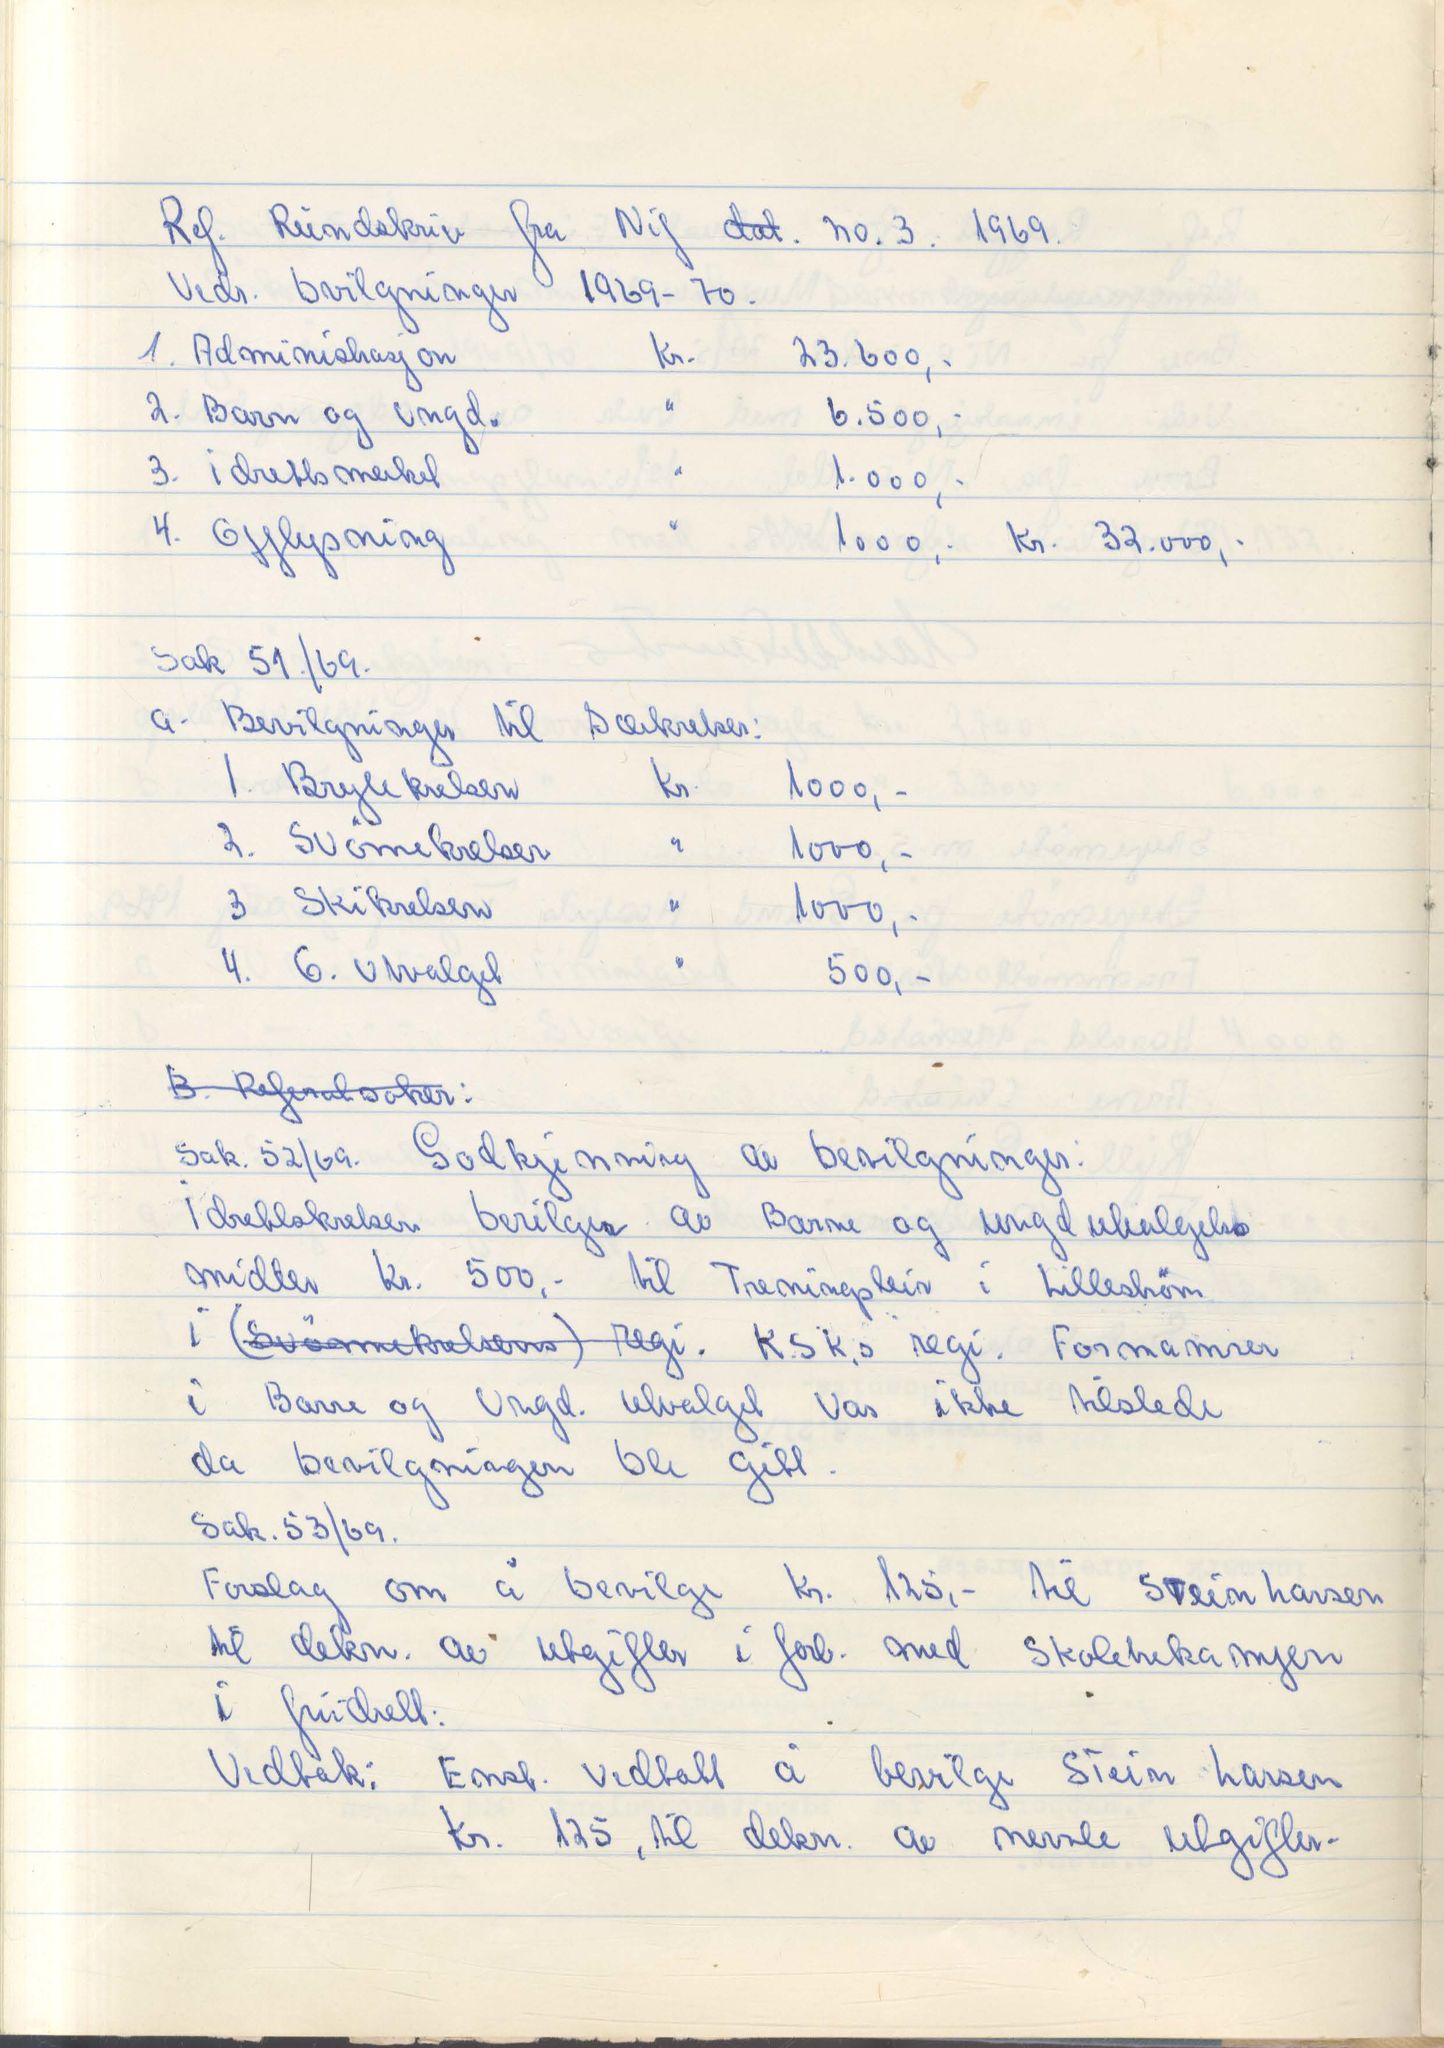 Ref. Rundskriv fra Nif dat. no. 3. 1969.
Vedr. bvilgninger 1969-70.
1. Administrasjon Kr. 23.600,-
2. Barn og Ungd. " 6.500,-
3. idrettsmerket " 1.000,-
4. Opplysning " 1000,- Kr. 32.000,-
Sak 51./69.
a. Bevilgninger til Særkretser:
1. Brytekretsen Kr. 1000,-
2. Svömekretsen " 1000,-
3 Skikretsen " 1000,-
4. G. Utvalget " 500,-
B. Referatsaker:
Sak. 52/69. Godkjenning av bevilgninger:
Idrettskretsen bevilger av Barne og ungdutvalgets
midler Kr. 500,- til Treningsleir i Lilleström
i (Svömmekretsens) regi. K.S.K,s regi. Formannen
i Barne og Ungd. utvalget var ikke tilstede
da bevilgningen ble gitt.
Sak. 53/69.
Forslag om å bevilge Kr. 125,- til Stein Larsen
til dekn. av utgifter i forb. med Skoletrekampen
i friidrett:
Vedtak: Enst. vedtatt å bevilge Stein Larsen
Kr. 125, til dekn. av nevnte utgifter-